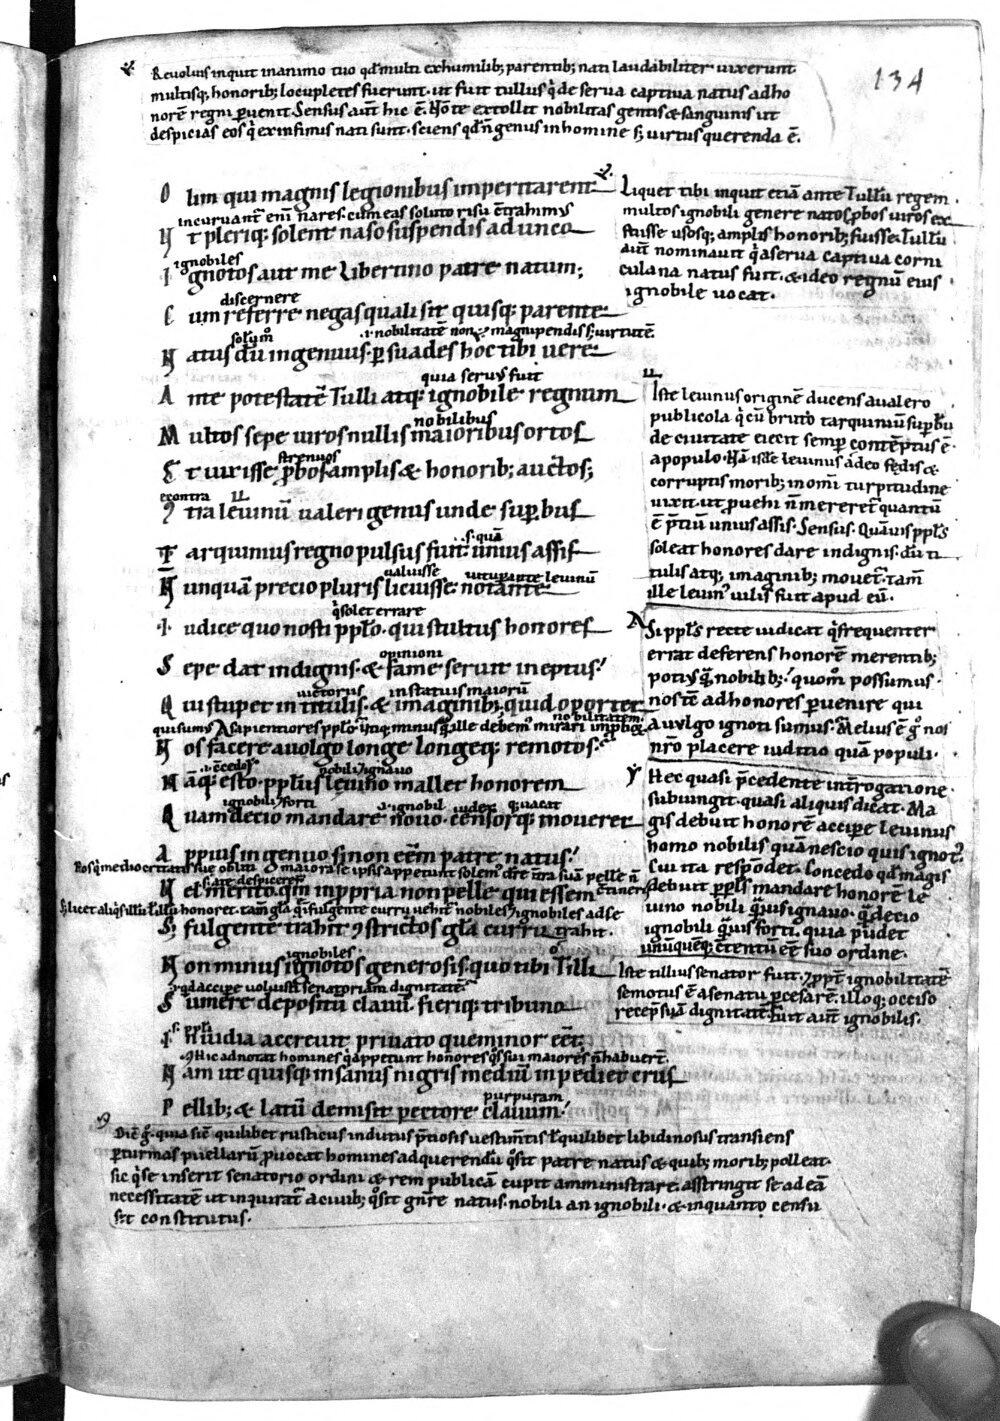 134
Reuoluis inquit inanimo tuo qd̄ multi exhumilib; parentib; nati laudabiliter uixerunt
multisq; honorib; locupletes fuerunt. ut fuit tullus q̇ de serua captiua natus adho
norē regni ꝑuenit. Sensus aūt hic ē. Nō te extollit nobilitas gentis & sanguinis ut
despicias eos q̇ exinfimis nati sunt. sciens qd̄ n̄ genus inhomine s; uirtus querenda ē.
O lim qui magnis legionibus imperitarent
incuruant̄ eni nares. cum eas soluto risu ɔ̄trahimus
N t pleriq; solent naso suspendis adunco
ignobiles
I gnotos aut me libertino patre natum;
discernere
C um referre negas quali sit quisq; parente
solum̊ .i. nobilitatē non magnipendis s; uirtutē
N atus dū ingenuus. ꝑsuades hoc tibi uere
quia seruꝰ fuit
A nte potestatē Tulli atq; ignobile regnum
nobilibus
M ultos sepe uiros nullis maioribus ortos
strenuos
E t uixisse ꝓbos. amplis & honorib; auctos;
econtra
ꝯ tra leuinū ualeri genus unde suꝑbus
.s. quā
T arquinius regno pulsus fuit. unius assis
ualuisse uituꝑante leuinū
N unquā precio pluris licuisse. notante
q̇ solet errare
I udice quo nosti pp̄lo. qui stultus honores
opinioni
S epe dat indignis. & fame seruit ineptus.
uictorus instatuis maiorū
Q ui stupet in titulis. & imaginib; quid oportet
nobilitatem
N os facere a uolgo longe longeq; remotos.
.i. ɔ̄cedo
nobili ignauo
N āq; esto. pp̄lus leuino mallet honorem
ignobili forti .i. ignobil iudex
Q uam decio mandare nouo. censorq; mouerer
A ppius ingenuo si non eēm patre natus.
N el merito. qm̄ inꝓpria non pelle quiessem
S; licet aliq̇s honoret. tam̄ gl̄a q̇ fulgente curru uehit̄ nobiles ignobiles adse
S; fulgente trahit ꝯstrictos gl̄a curru trahit.
ignobiles.
N on minus ignotos generosis. quo tibi Tilli
qd accipe uoluisti senatoriam dignitatē
S umere depositū clauū. fieriq; tribuno
.s. pp̄li
I nuidia accreuit priuato que minor eēt;
Hic adnotat homines q̇ appetunt honores q̇s sui maiores n̄ habuer̄t.
N am ut quisq; insanus nigris mediū inpediet crus
purpuram
P ellib; & latū demisit pectore clauum.
Liquet tibi inquit etiā ante Tullii regem.
multos ignobili genere natos ꝓbos uiros ex
stitisse usosq; amplis honorib; fuisse. Tullū
aūt nominauit q̇ aserua captiua corni
culana natus fuit. & ideo regnū eius
ignobile uocat.
Iste leuinus originē ducens aualero
publicola q̇ cū bruto tarquiniū suꝑbū
de ciuitate eiecit semꝑ contēptus ē
apopulo. Nā iste leuinus adeo fedis &
corruptis morib; inomi turpitudine
uixit. ut ꝓuehi n̄ mereret̄ quantū
ē p̄tiū unius assis. Sensus. Quāuis pp̄ls
soleat honores dare indignis. dū ti
tulis atq; imaginib; mouet̄. tam̄
ille leuin uilis fuit apud eū.
Si pp̄ls recte iudicat q̇ frequenter
errat deferens honorē merentib;
potiꝰ quā nobilib;. quom̊ possumus
nos tē adhonores ꝑuenire qui
a uulgo ignoti sumus. Melius ē g̊ nos
nr̄o placere iuditio quā populi.
Hec quasi p̄cedente int̄rogatione
subiungit. quasi aliquis dicat. Ma
gis debuit honorē accipe leuinus
homo nobilis quā nescio quis ignot?
Cui ita respōdet. Concedo qd̄ magis
debuit pp̄ls mandare honorē le
uino nobili quis ignauo. q̄ decio
ignobili quis forti. quia pudet
unūquēq; ɔ̄tentū eē suo ordine.
Iste tillius senator fuit. ꝓpt̄ ignobilitatē
semotus ē asenatu ꝑ cesarē. illoq; occiso
recep̄ suā dignitatē. Fuit aūt ignobilis.
Dic̄ g̊. quia sic quilibet rusticus indutus p̄tiosis uestim̄tis l̄ quilibet libidinosus transiens
ꝑ turmas puellarū ꝓuocat homines adquerendū q̊ sit patre natus & quib; morib; polleat.
sic q̇ se inserit senatorio ordini & rem publicā cupit amministrare. asstringit se ad eā
necessitatē ut inquirat̄ aciuib; q̊ sit gn̄re natus. nobili an ignobili. & inquanto censu
sit constitutus.